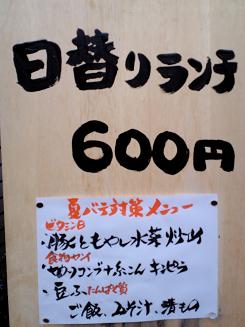 日替りランチ
600円
夏バテ対策メニュー
ビタミンB
豚ともやし水菜炒め
食物センイ
切りコンブ糸こんキンピラ
豆ふ たんぱく質
ご飯、みそ汁、漬もの